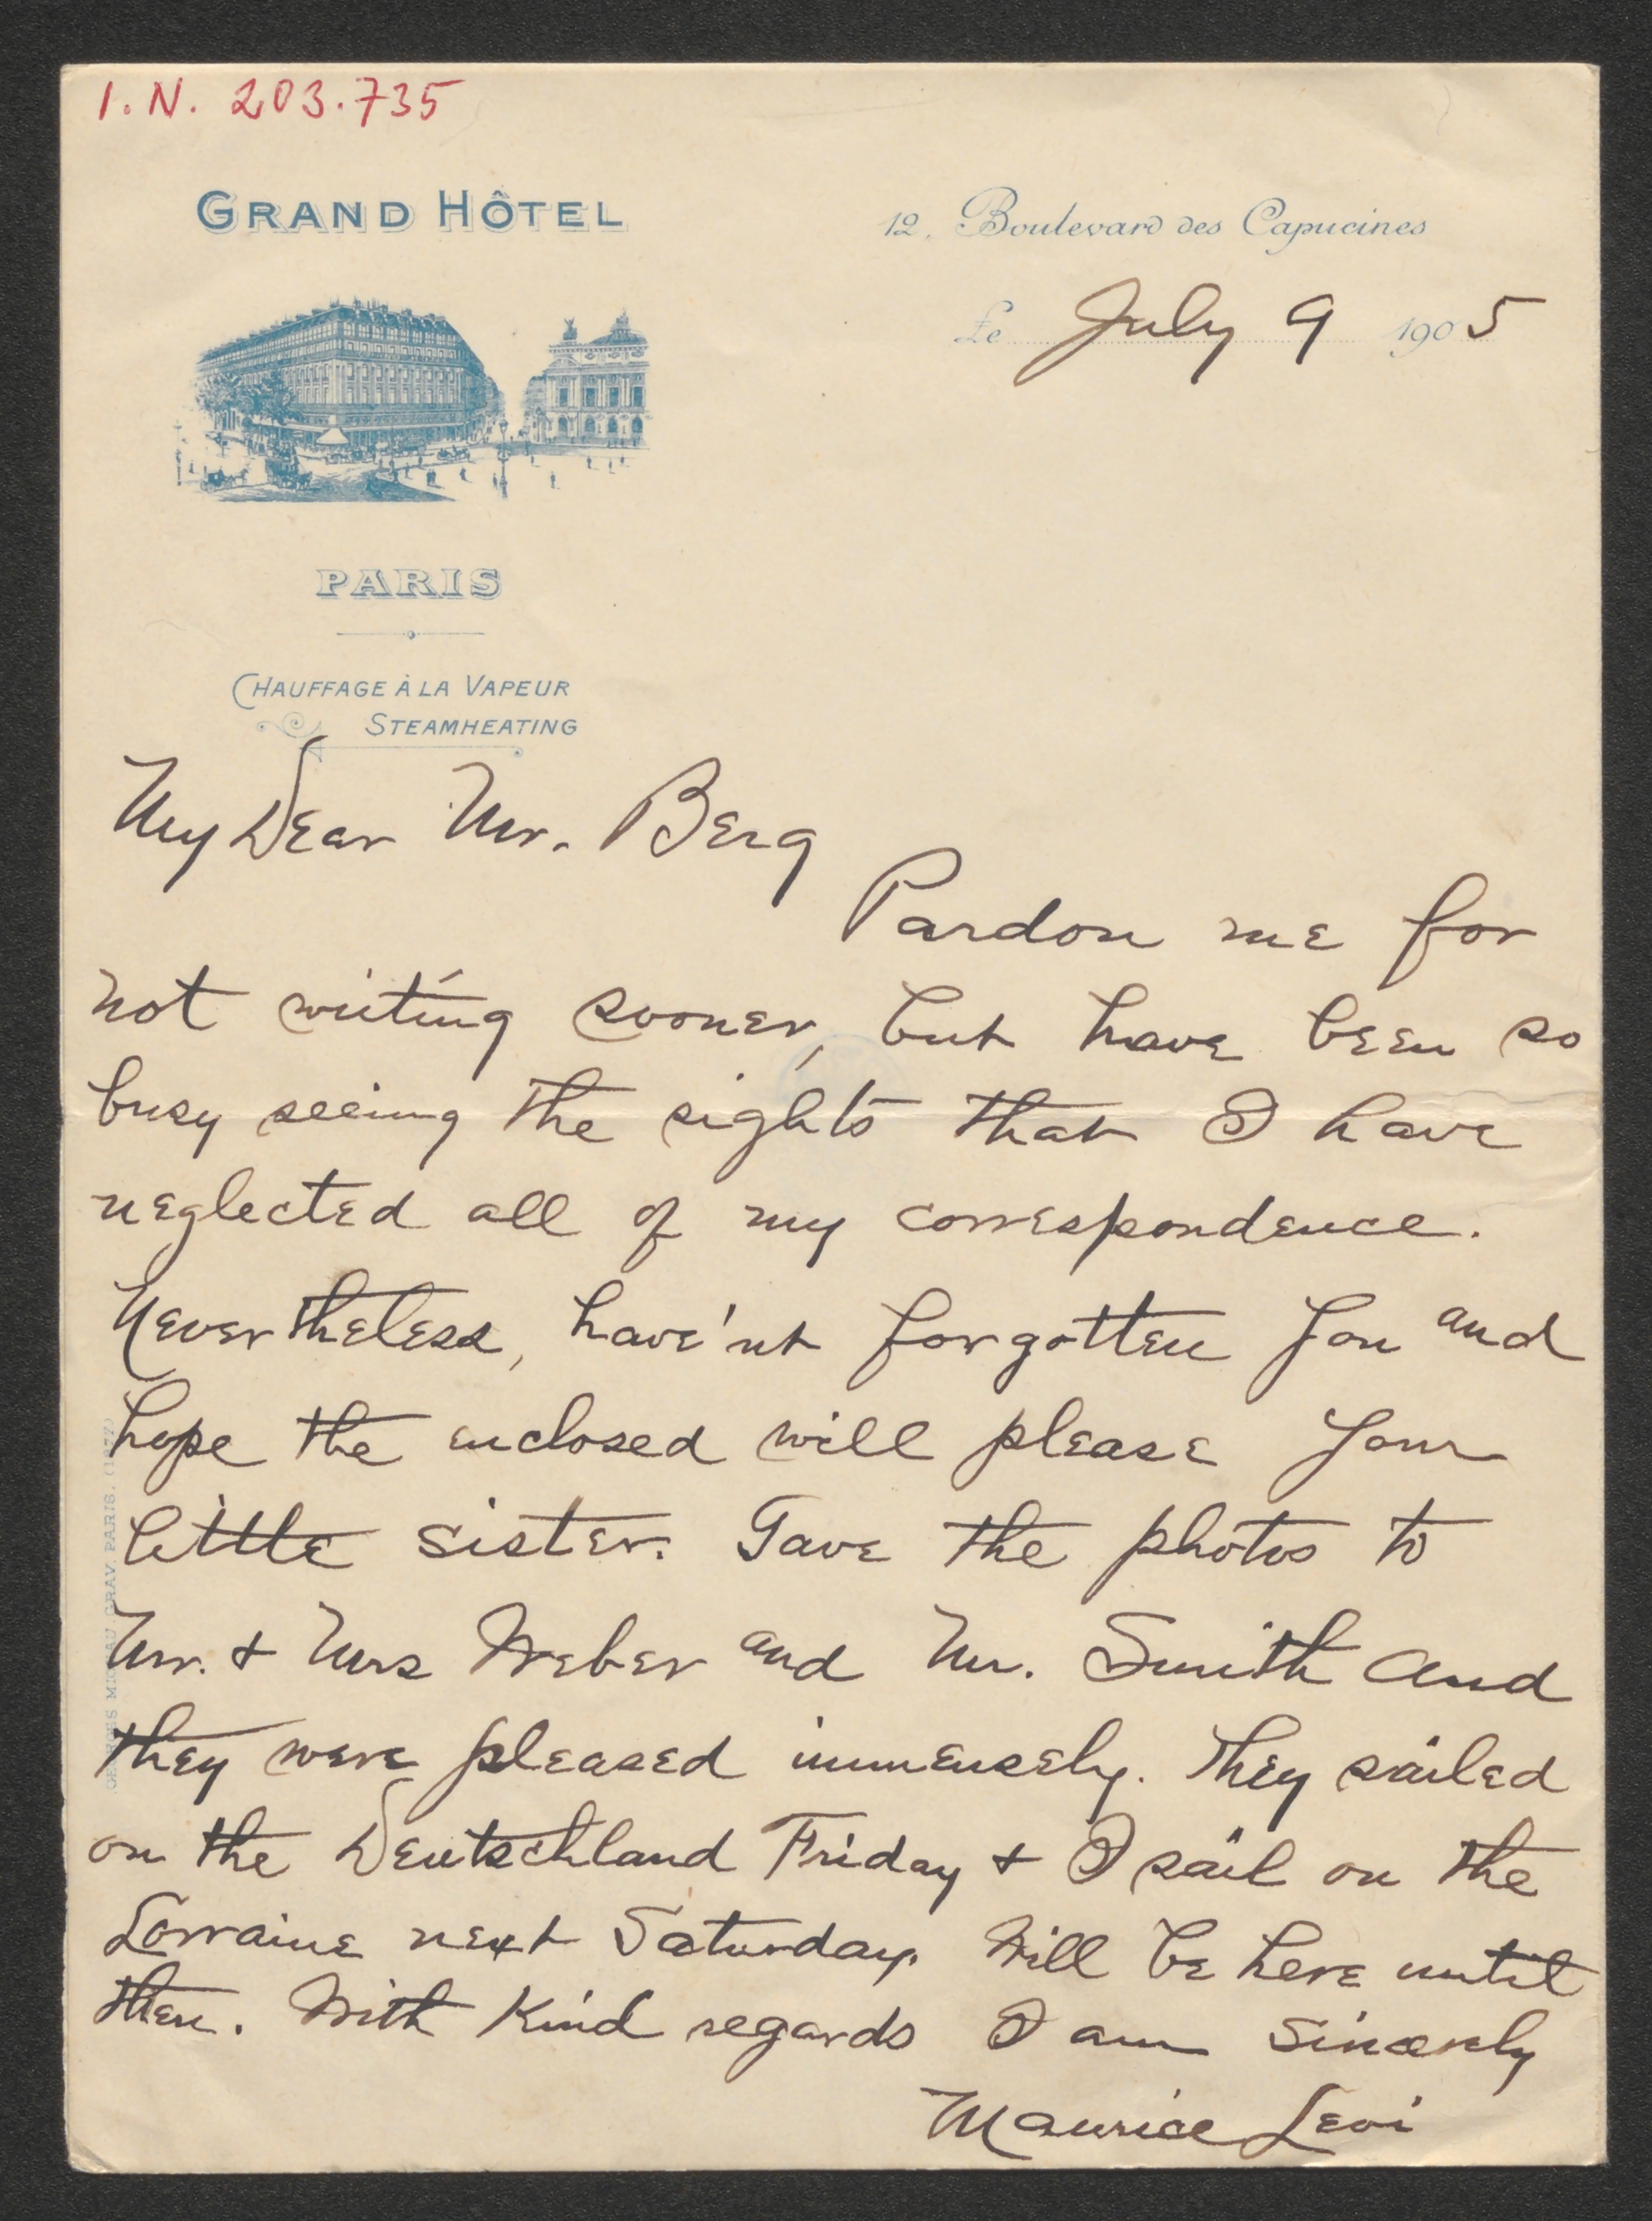 I.N. 203.735
GRAND HÔTEL
12, Boulevard des Capucines
Le July 9 1905
PARIS
CHAUFFAGE À LA VAPEUR
STEAMHEATING
My Dear Mr. Berg
Pardon me for
not writing sooner, but have been so
busy seeing the sights that I have
neglected all of my correspondence.
Nevertheless, have'nt forgotten you and
hope the enclosed will please your
little sister. Gave the photos to
Mr. & Mrs Weber and Mr. Smith and
they were pleased immensely. They sailed
on the Deutschland Friday & I sail on the
Lorraine next Saturday. Will be here until
then. With Kind regards I am sincerely
Maurice Levi
GRAV. PARIS.